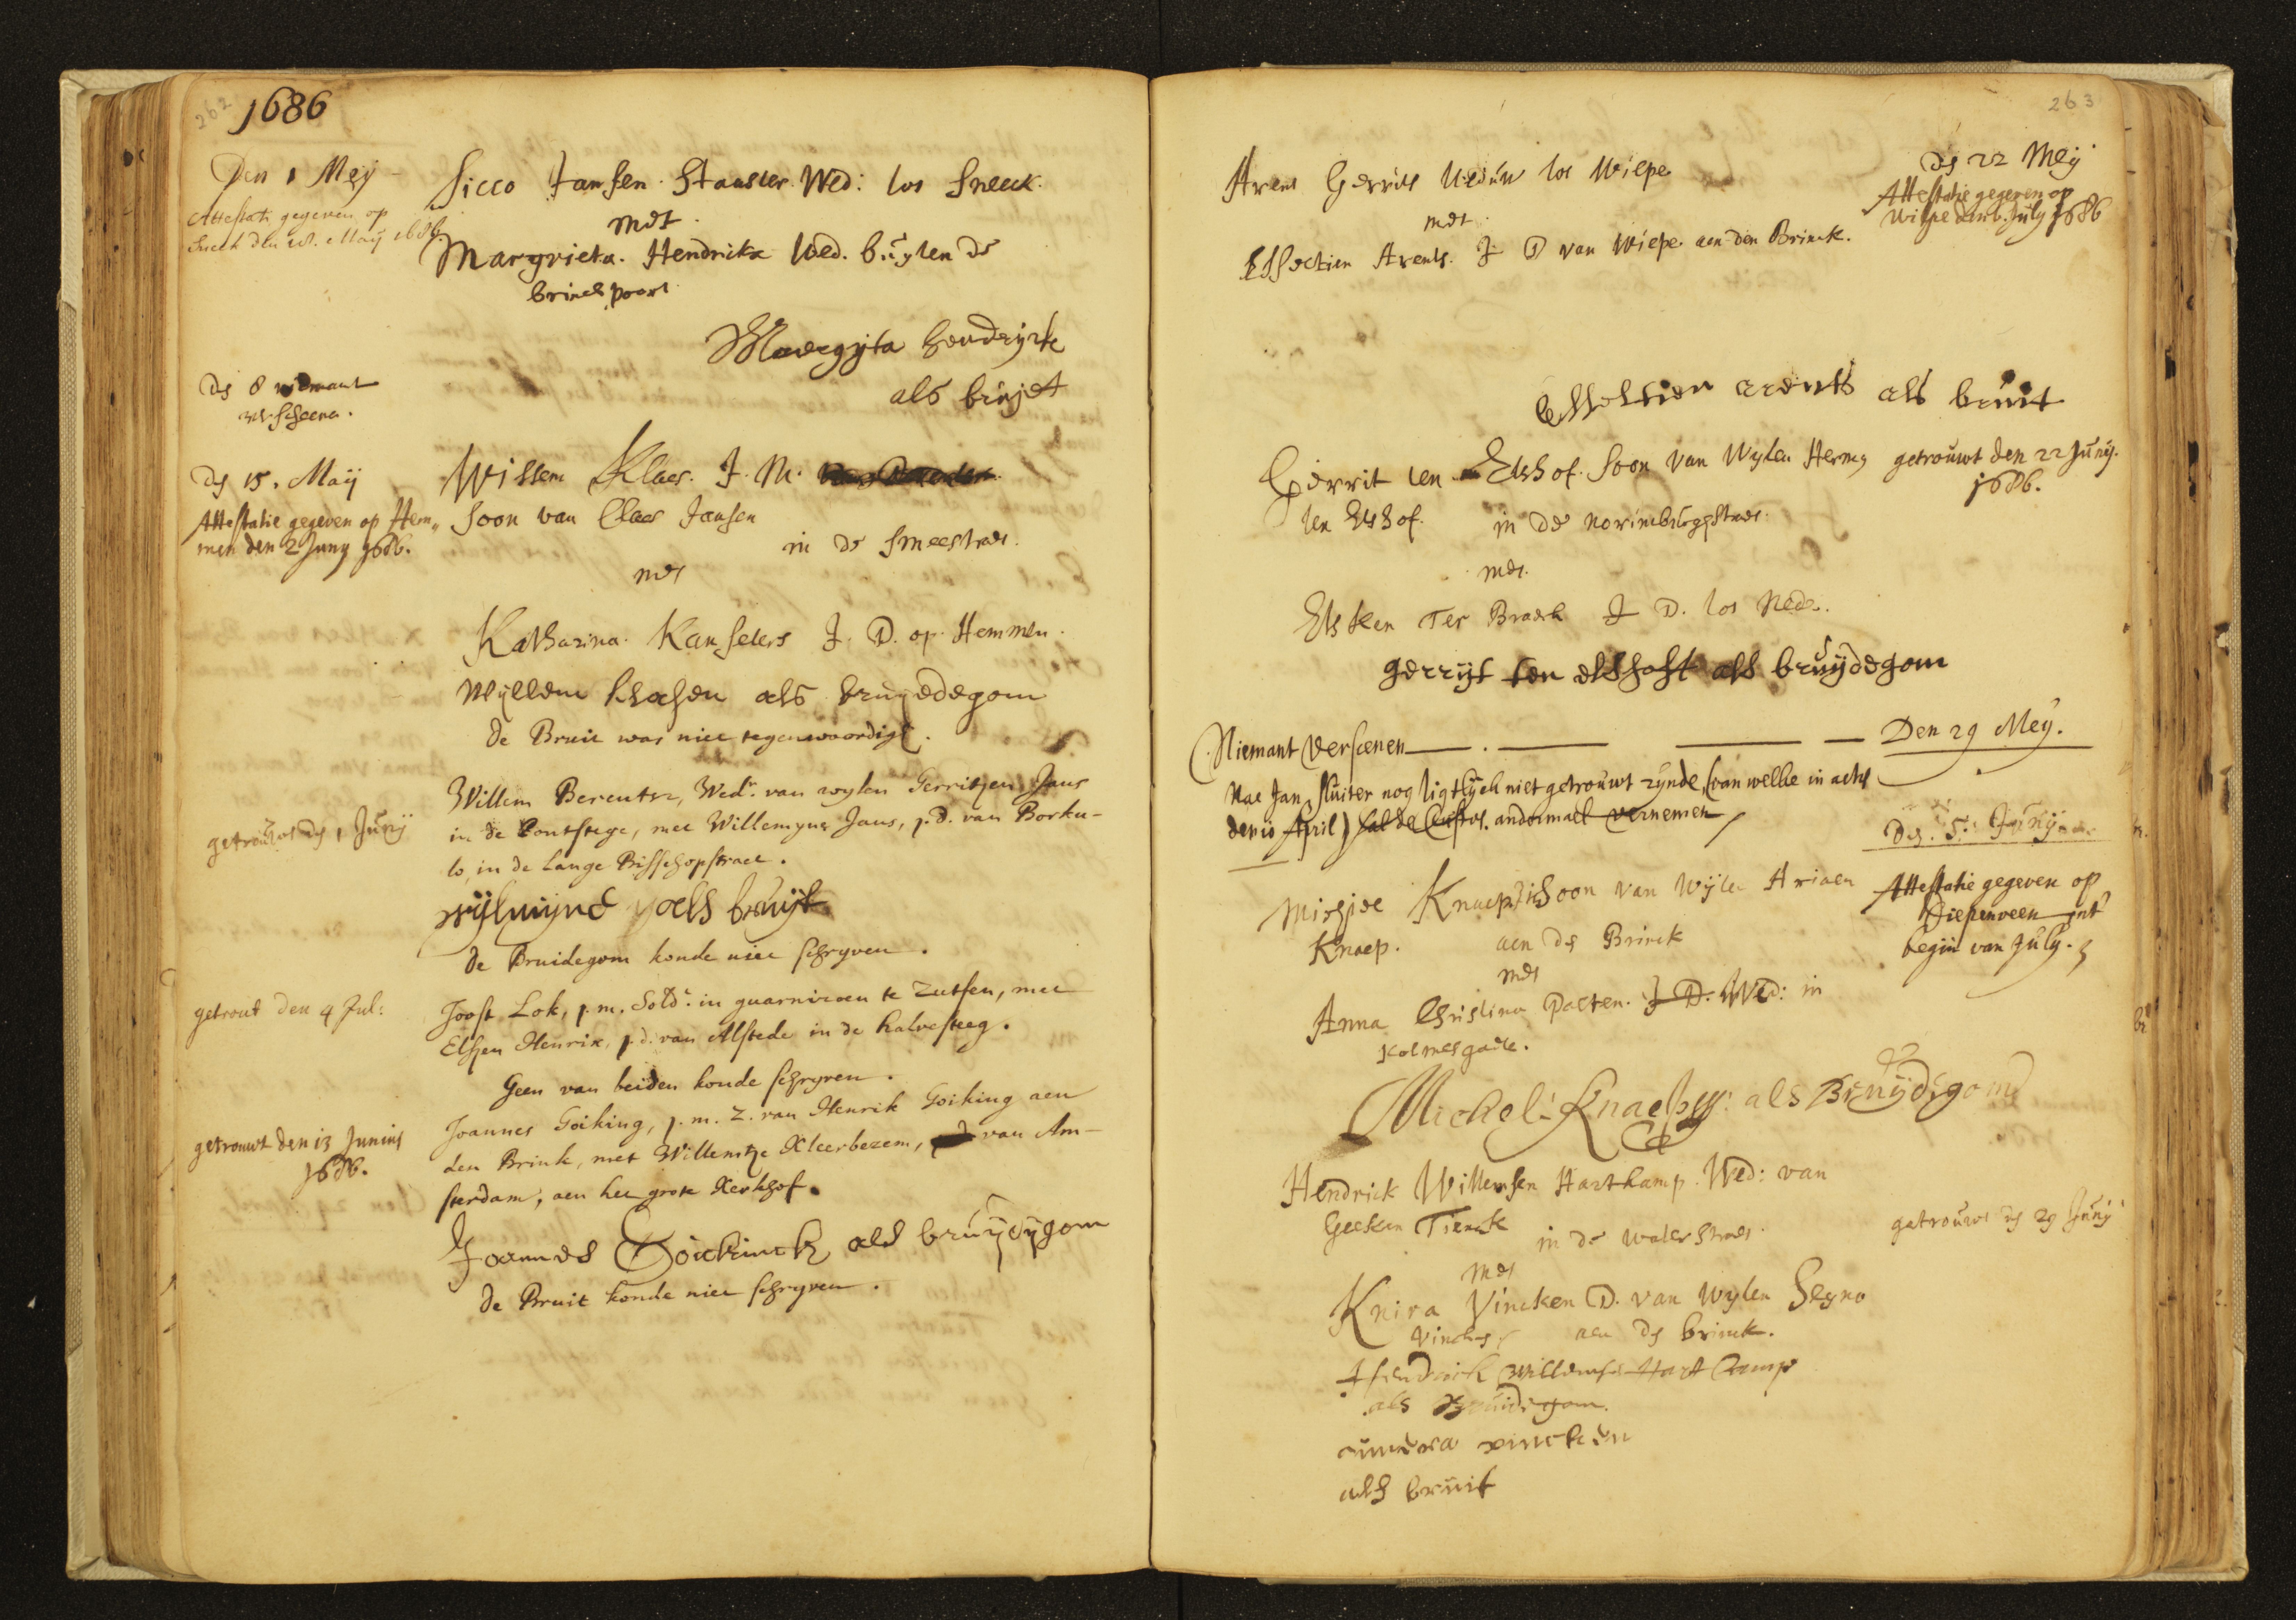 262
1686
Den 1 Meij
Attestati gegeven op
Sneek den 18. Maij 1686.
Sicco Jansen Staaller Wed: tot Sneeck.
met
Margrieta. Hendrickx Wed. buijten de
brinckpoort
Maergijta hendrijckx
als bruijt
de 8 niemant
verscheena.
de 15. Maij
Attestatie gegeven op Hem„
men den 2 Juny 1686.
Willem Klaes. J. M.
Soon van Claes Jansen
in de smeestraet.
met
Katharina. Kanselers J. D. op Hemmen.
Wyllem klasen als bruyedegom
de Bruit was niet tegenwoordigh.
getrouwt de 1 Junij
Willem Berentsz, Wedr. van wylen Gerritjen Jans
in de Contstege, met Willemyne Jans, j. d. van Borku-
lo, in de Lange Bisschopstraet.
wijlmijne yaels bruijt
de Bruidegom konde niet schryven.
getrout den 4 Jul:
Joost Lok, j. m. Soldt. in guarnizoen te Zutfen, met
Elsjen Henrix, j. d. van Alstede in de halvesteeg.
Geen van beiden konde schryven.
getrouwt den 13 Junius
1686.
Joannes Goiking, j. m. Z. van Henrik Goiking aen
den Brink, met Willemtje Kleerbezem, van Am-
sterdam, aen het grote Kerkhof.
Joannes Goickinck als bruijdygom
de Bruit konde niet schryven.
263
Arent Gerrits Weduw tot Wilpe
met
Esselien Arents. J D van Wilpe aen den Brinck.
de 22 Meij
Attestatie gegeven op
Wilpe den 6. July 1686
Esseltien arents als bruit
Gerrit ten Elshof. Soon van Wylen Hermen
ten Elshof. in de norinbergstraet.
getrouwt den 22 Junij.
1686.
met.
Elsken Ter Braeck J D. tot Nede.
gerrijt ten elshoft als bruijdegom
Niemant verscenen
Den 29 Meij.
Nae Jan Sluiter nog ligtlijck niet getrouwt zijnde, (van welke in actis
den 10 April) sal de Custos. andermael vernemen
Den. 5. Junij
Michiel Knaep Soon van Wijlen Ariaen
Knaep. aen de Brinck
met
Anna Christina Palten. J. D. Wed: in
Kolmesgate.
Attestatie gegeven op
Diepenveen int
begin van July.
Michel Knaep als Bruijdigom
Hendrick Willemsen Hartkamp. Wed: van
Geesken Tienck in de waterstraet
getrouwt de 29 Junij
met
Knira Vincken D. van Wylen Segno
Vincken aen de brinck.
Hendrick willemse Hart Camp
als Bruidigom.
vincken
als bruit